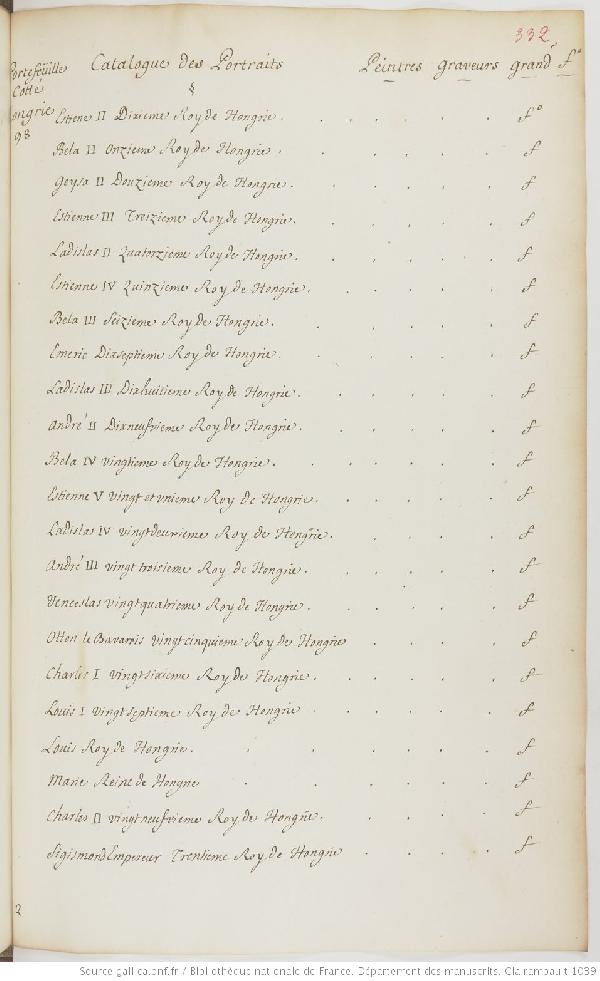 332
Portefeüille Catalogue des Portraits Peintres Graveurs grandr f°
Cotté §
ongrie Estiene II Dixieme Roy de Hongrie. f°
98
Bela II Onzieme Roy de Hongrie. f
Geysa II Douzieme Roy de Hongrie. f
Estienne III Treizieme Roy de Hongrie. f
Ladislas II Quatorzieme Roy de Hongrie. f
Estienne IV Quinzieme Roy de Hongrie. f
Bela III Seizieme Roy de Hongrie. f
Emeric Dixseptieme Roy de Hongrie. f
Ladislas III Dixhuitieme Roy de Hongrie. f
André II Dixneufvieme Roy de Hongrie. f
Bela IV vingtieme Roy de Hongrie. f
Estienne V vingt et vnieme Roy de Hongrie. f
Ladislas IV vingtdeuxieme Roy de Hongrie. f
André III vingt troisieme Roy de Hongrie. f
Venceslas vingt quatrieme Roy de Hongrie. f
Otton le Bavarois vingtcinquieme Roy de Hongrie f
Charles I vingtsixieme Roy de Hongrie. f
Louis I vingt septieme Roy de Hongrie f
Louis Roy de Hongrie. f
Marie Reine de Hongrie f
Charles II vingt neufvieme Roy de Hongrie. f
Sigismond Empereur Trentieme Roy de Hongrie f
2
Source gallica.bnf.fr / Bibliothèque nationale de France. Département des manuscrits. Clairambault 1039